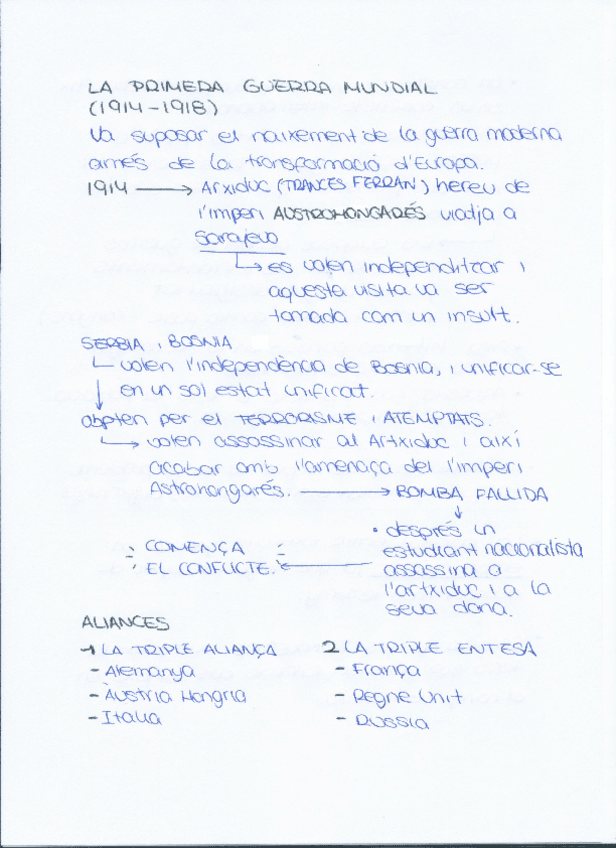 LA PRIMERA GUERRA MUNDIAL
(1914-1918)
Va suposar el naixement de la guerra moderna
amés de la transformació d'Europa.
1914 → Arxiduc (FRANCES FERRAN) hereu de
l'imperi AUSTROHONGARÉS viatja a
Sarajevo
↳ es volen independitzar i
aquesta visita va ser
tomada com un insult.
SERBIA i BOSNIA
volen l'independència de Bosnia, i unificar-se
en un sol estat unificat.
obpten per el TERRORISME i ATEMPTATS.
↳ volen assassinar al Artxiduc i així
acabar amb l'amenaça del l'imperi
Astrohongarés. → BOMBA FALLIDA
• després un
estudiant nacionalista
assassina a
l'artxiduc i a la
seva dona.
COMENÇA
EL CONFLICTE.
ALIANCES
1 LA TRIPLE ALIANÇA
- Alemanya
- Àustria Hongria
- Italia
2 LA TRIPLE ENTESA
- França
- Regne Unit
- Russia